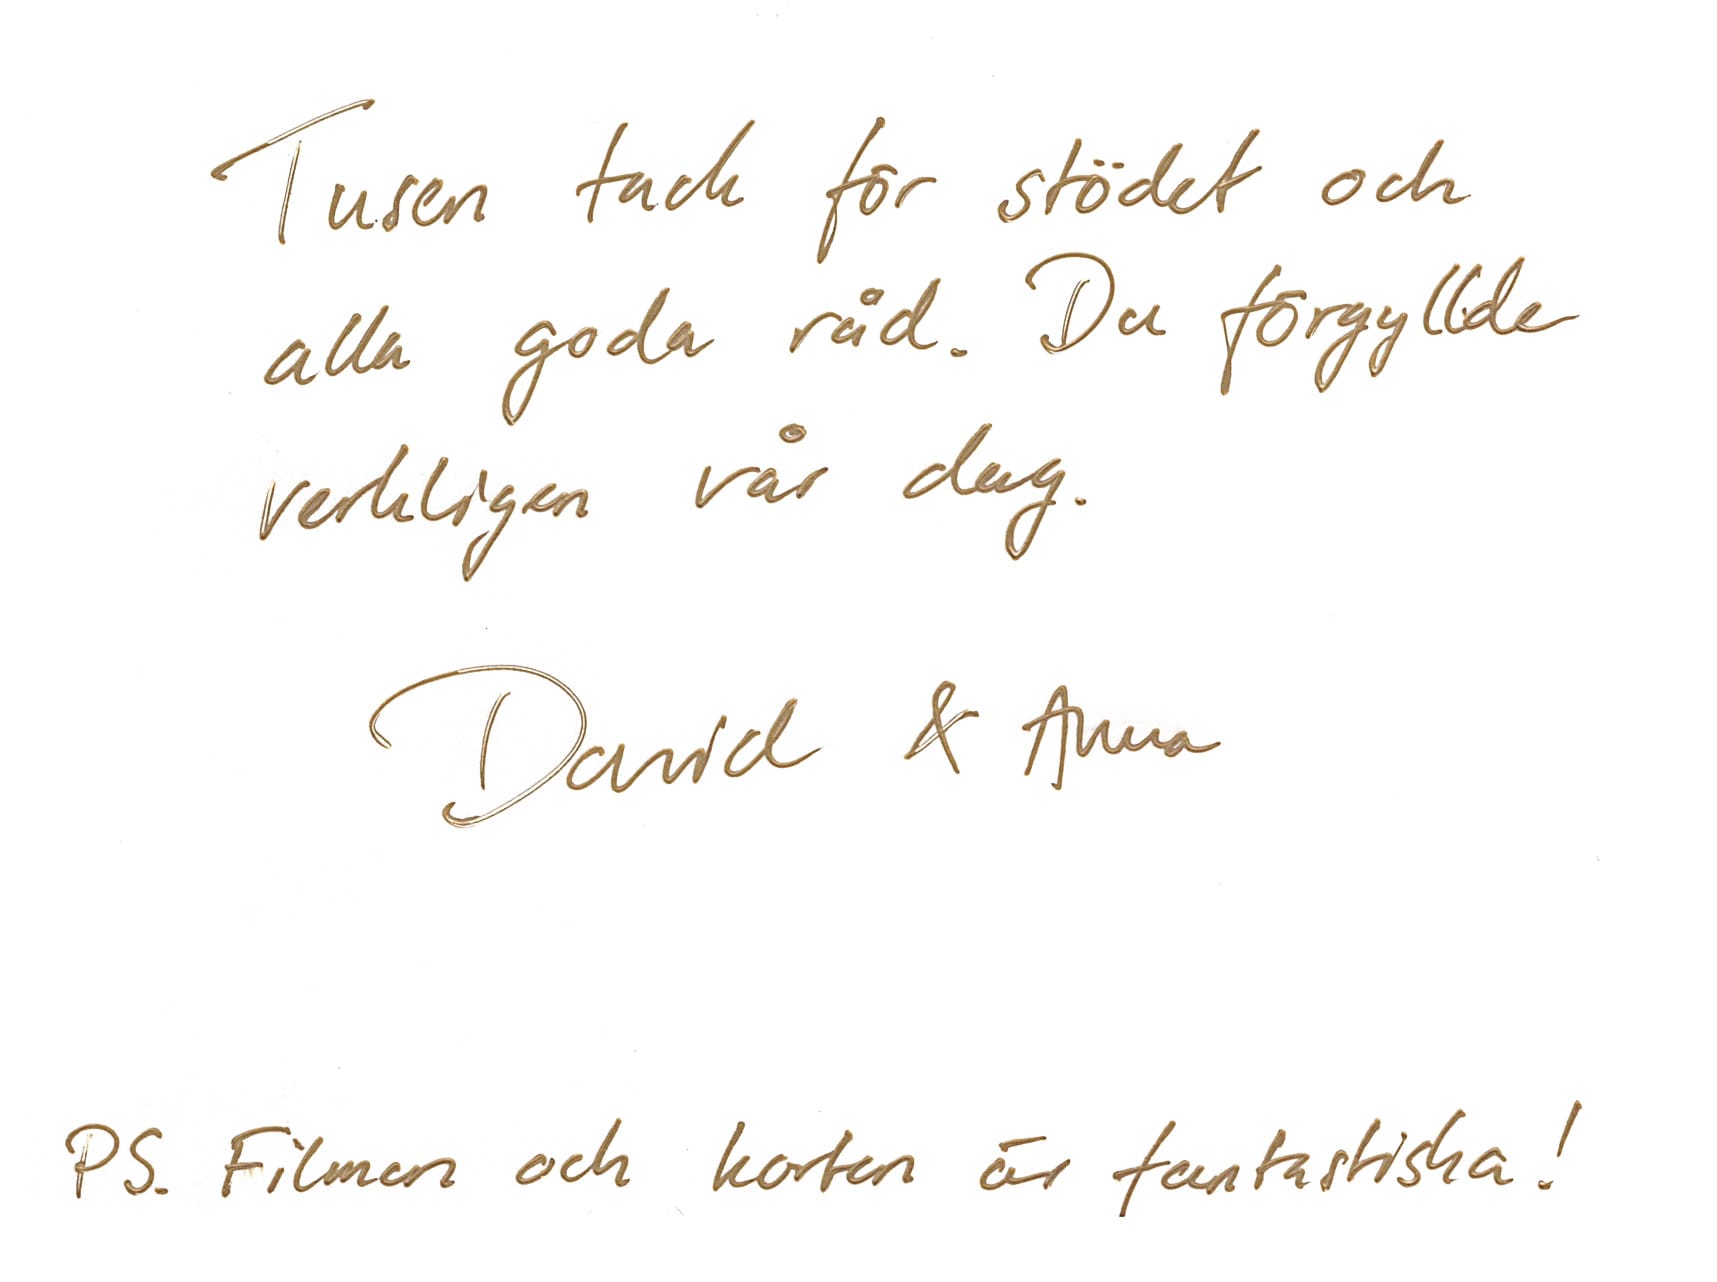 Tusen tack för stödet och
alla goda råd. Du förgyllde
verkligen vår dag.
David & Anna
PS. Filmen och korten är fantastiska!